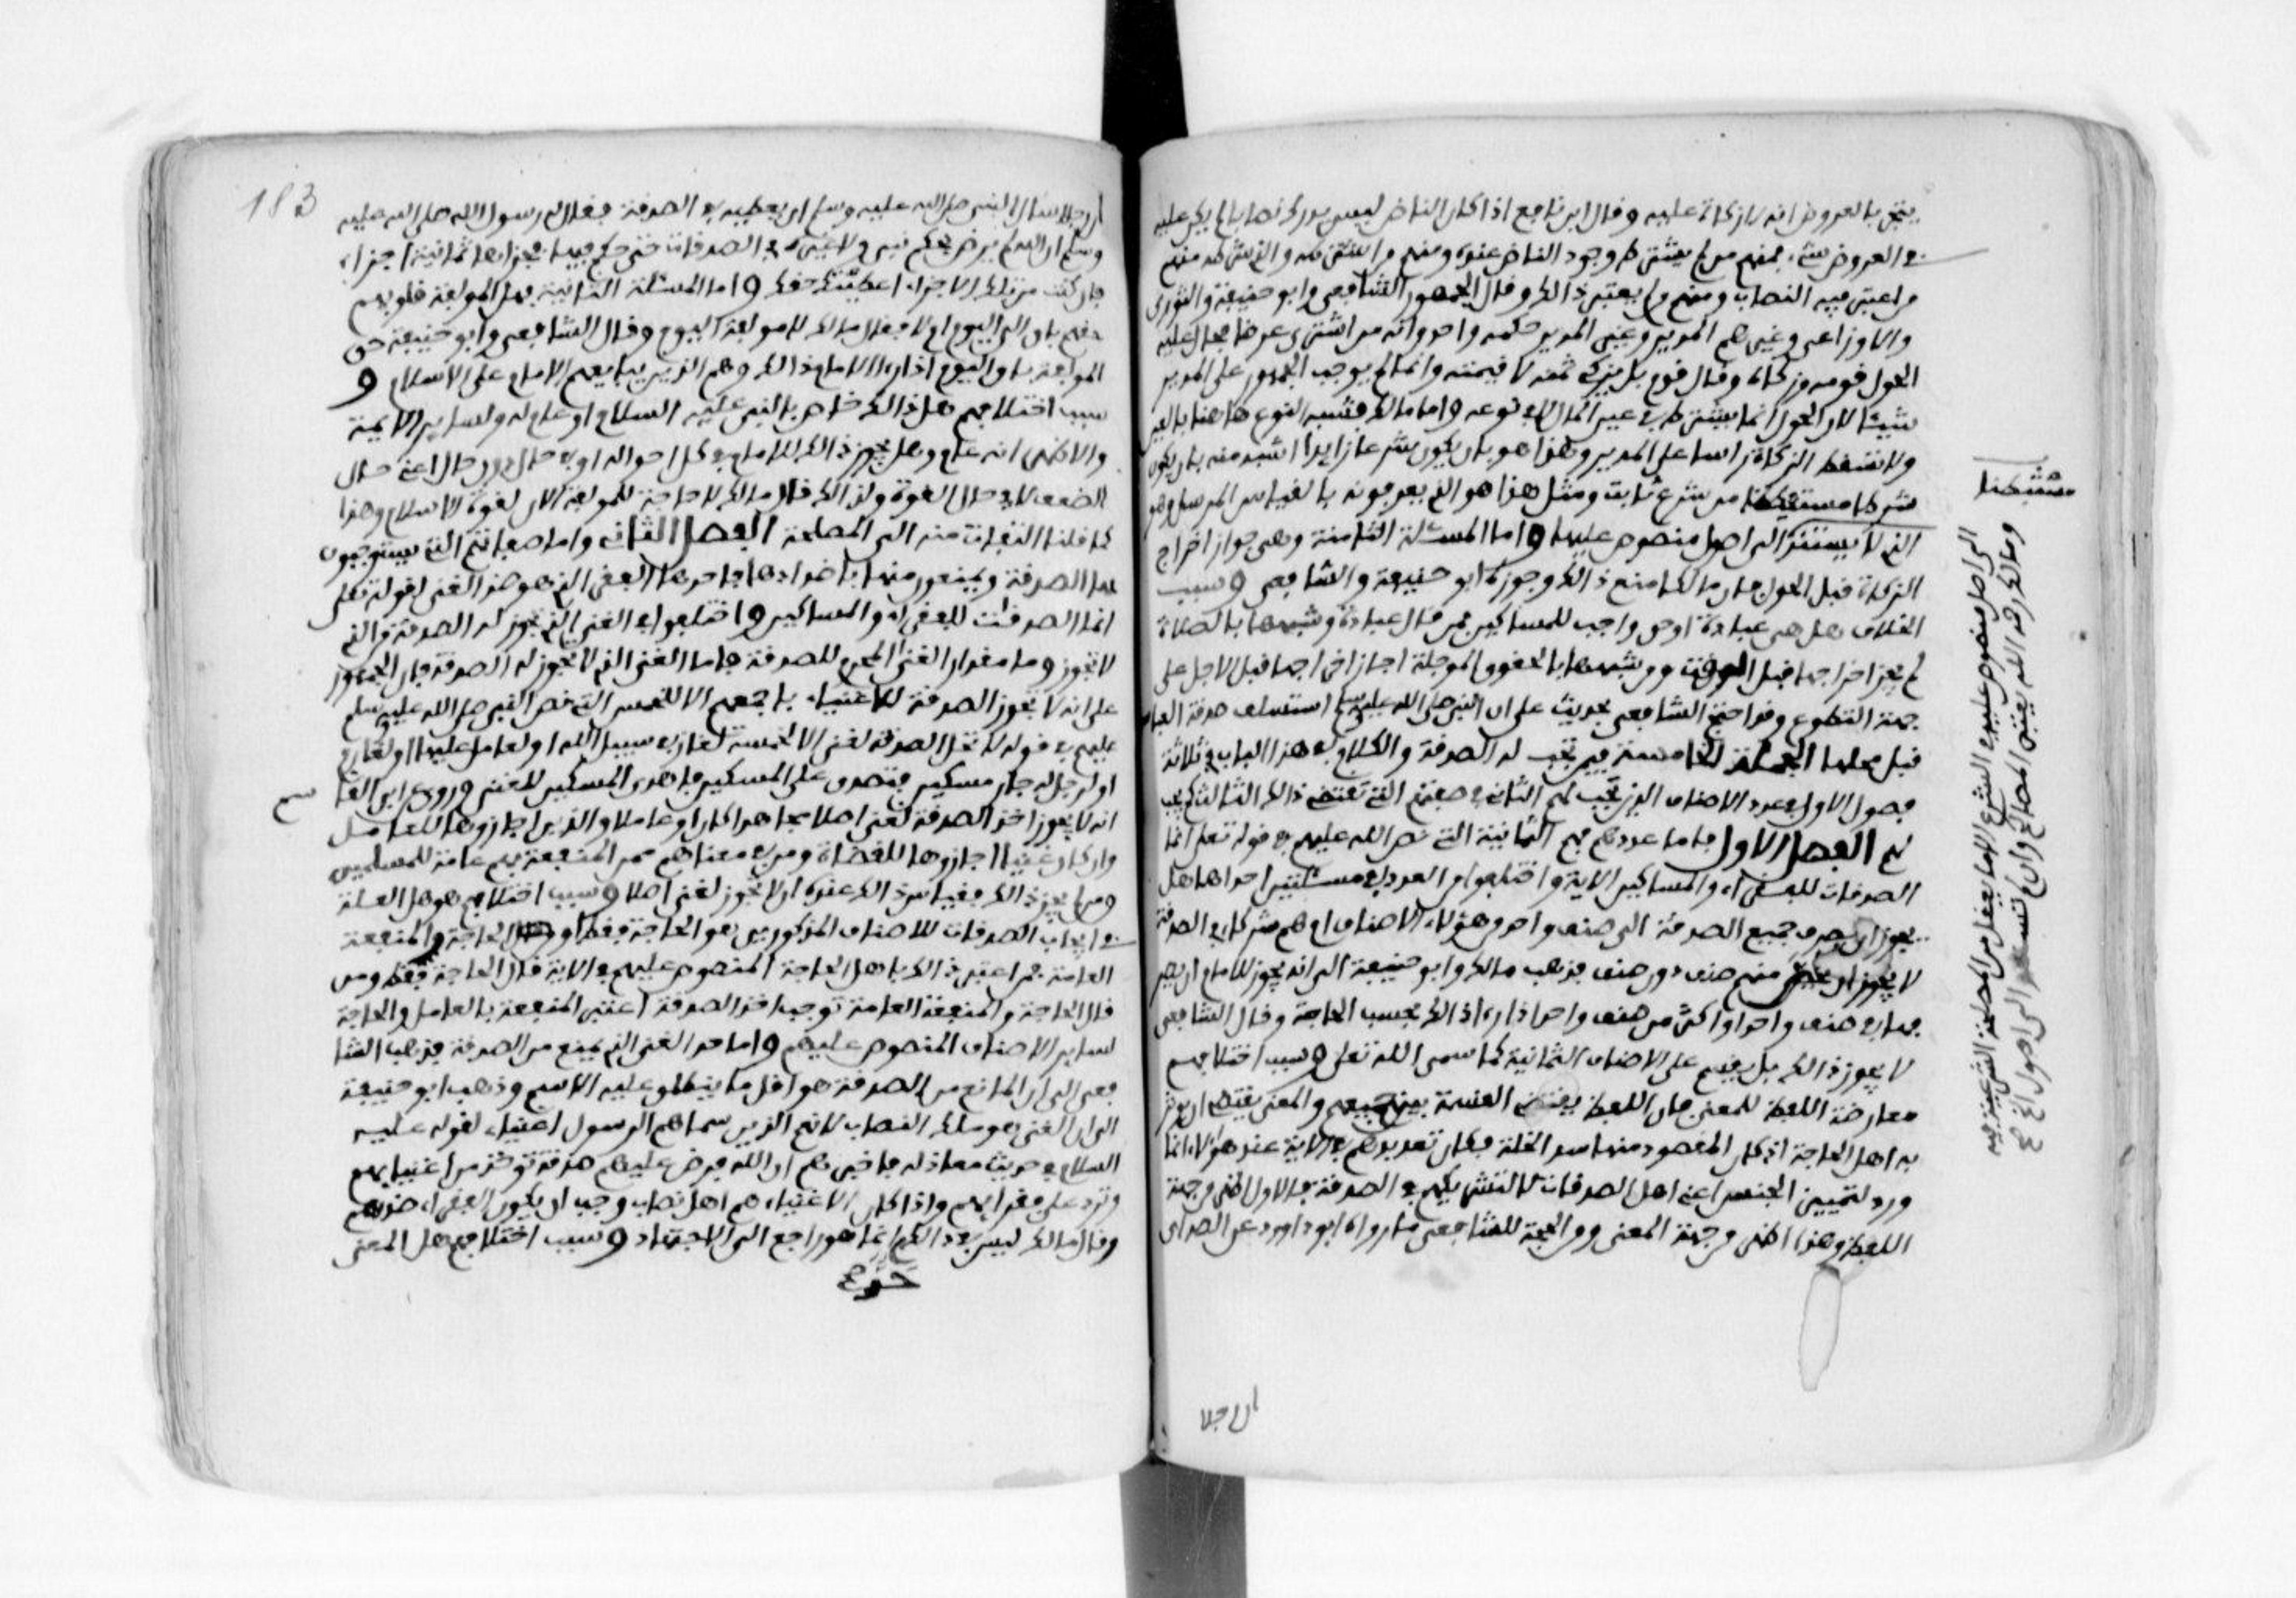 يتجر بالعروض انه لا زكاة عليه وقال ابن نافع اذا كان الناض ليس يدرك نصابا لم يكن عليه
في العروض شيء فمنهم من لم يشترط وجود الناض عنده ومنهم من اشترطه والذي شرطه منهم
من اعتبر فيه النصاب ومنهم من لم يعتبر ذالك وقال الجمهور الشافعي وابو حنيفة والثوري
والاوزاعي وغيرهم المدير وغير المدير حكمه واحد وانه من اشترى عرضا فحال عليه
الحول قومه وزكاه وقال قوم بل يزكي ثمنه لا قيمته وانما لم يوجب الجمهور على المدير
شيئا لان الحول انما يشترط في عين المال لا في نوعه واما مالك فشبه النوع هاهنا بالعين
ولا تسقط الزكاة راسا على المدير وهذا هو بان يكون شرعا زايدا اشبه منه بان يكون
شرعا مستنبطا من شرع ثابت ومثل هذا هو الذي يعرفونه بالقياس المرسل وهو
الذي لا يستند الى اصل منصوص عليها واما المسئلة الثامنة وهي جواز اخراج
الزكاة قبل الحول فان مالكا منع ذالك وجوزه ابو حنيفة والشافعي وسبب
الخلاف هل هي عبادة او حق واجب للمساكين فمن قال عبادة وشبهها بالصلاة
لم يجز اخراجها قبل الوقت ومن شبهها بالحقوق الموجلة اجاز اخراجها قبل الاجل على
جهة التطوع وقد احتج الشافعي بحديث علي ان النبي صلى الله عليه وسلم استسلف صدقة العباس
قبل محلها الجملة الخامسة فيمن تجب له الصدقة والكلام في هذا الباب في ثلاثة
فصول الاول في عدد الاصناف الذين تجب لهم الثاني في صفتهم التي تقتضي ذالك الثالث كم يجب
لهم الفصل الاول فاما عددهم فهم الثمانية التي نص الله عليهم في قوله تعلى انما
الصدقات للفقراء والمساكين الاية واختلفوا من العدد في مسئلتين احداها هل
يجوز ان تصرف جميع الصدقة الى صنف واحد من هؤلاء الاصناف او هم شركاء في الصدقة
لا يجوز ان يخص منهم صنف دون صنف فذهب مالك وابو حنيفة الى انه يجوز للامام ان يصر
فها في صنف واحد او اكثر من صنف واحد اذا راى ذالك بحسب الحاجة وقال الشافعي
لا يجوز ذالك بل يقسم على الاصناف الثمانية كما سمى الله تعلى وسبب اختلافهم
معارضة اللفظ للمعنى فان اللفظ يقتضي القسمة بين جميعهم والمعنى يقتضي ان يوثر
به اهل الحاجة اذ كان المقصود منها سد الخلة فكان تعديدهم في الاية عند هؤلاء انما
ورد لتمييز الجنس اعني اهل الصدقات لا لتشريكهم في الصدقة فالاول اظهر من جهة
اللفظ وهذا اظهر من جهة المعنى ومن الحجة للشافعي ما رواه ابو داوود عن الصداي
ان رجلا
مستنبطا
الى اصل منصوص عليه في الشرع الا ما يعقل من المصلحة الشرعية فيه
ومالك رحمه الله يعتبر المصالح وان لم تستند الى اصول
183
ان رجلا سال النبي صلى الله عليه وسلم ان يعطيه من الصدقة فقال له رسول الله صلى الله عليه
وسلم ان الله لم يرض بحكم نبي ولا غيره في الصدقات حتى حكم فيها فجزاها ثمانية اجزاء
فان كنت من تلك الاجزاء اعطيتك حقك واما المسئلة الثانية فهل المولفة قلوبهم
حقهم باق الى اليوم ام لا فقال مالك لا مولفة اليوم وقال الشافعي وابو حنيفة حق
المولفة باق اليوم اذا راى الامام ذالك وهم الذين يبايعهم الامام على الاسلام و
سبب اختلافهم هل ذالك خاص بالنبي عليه السلام او عام له ولساير الايمة
والاظهر انه عام وهل يجوز ذالك للامام في كل احواله او في حال دون حال اعني حال
الضعف لا في حال القوة ولذالك قال مالك لا حاجة للمولفة الان لقوة الاسلام وهذا
كما قلنا التفات منه الى المصلحة الفصل الثاني واما صفاتهم التي يستوجبون
بها الصدقة ويمنعون منها باضدادها فاحدها الفقر الذي هو ضد الغنى لقوله تعلى
انما الصدقات للفقراء والمساكين واختلفوا في الغني الذي تجوز له الصدقة والذي
لا تجوز وما مقدار الغنى المحرم للصدقة فاما الغني الذي لا تجوز له الصدقة فان الجمهور
على انه لا تجوز الصدقة للاغنياء باجمعهم الا للخمس التي نص النبي صلى الله عليه وسلم
عليهم في قوله لا تحل الصدقة لغني الا لخمسة لغاز في سبيل الله او لعامل عليها او لغارم
او لرجل له جار مسكين فتصدق على المسكين فاهدى المسكين للغني وروي عن ابن القا
سم
انه لا يجوز اخذ الصدقة لغني اصلا مجاهدا كان او عاملا والذين اجازوها للعامل
وان كان غنيا اجازوها للقضاة ومن في معناهم ممن المنفعة بهم عامة للمسلمين
ومن لم يجز ذالك فقياس ذالك عنده ان لا تجوز لغني اصلا وسبب اختلافهم هو هل العلة
في ايجاب الصدقات للاصناف المذكورين هو الحاجة فقط او الحاجة والمنفعة
العامة فمن اعتبر ذالك باهل الحاجة المنصوص عليهم في الاية قال الحاجة فقط ومن
قال الحاجة والمنفعة العامة توجب اخذ الصدقة اعتبر المنفعة بالعامل والحاجة
لساير الاصناف المنصوص عليهم واما حد الغنى الذي يمنع من الصدقة فذهب الشا
فعي الى ان المانع من الصدقة هو اقل ما ينطلق عليه الاسم وذهب ابو حنيفة
الى ان الغني هو مالك النصاب لانهم الذين سماهم الرسول اغنياء لقوله عليه
السلام في حديث معاذ له فاخبرهم ان الله فرض عليهم صدقة توخذ من اغنيايهم
وترد على فقرايهم واذا كان الاغنياء هم اهل نصاب وجب ان يكون الفقراء ضدهم
وقال مالك ليس في ذالك حد انما هو راجع الى الاجتهاد وسبب اختلافهم هل المعنى